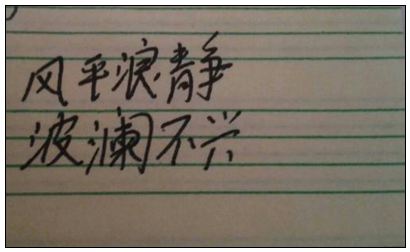 风平浪静
波澜不兴